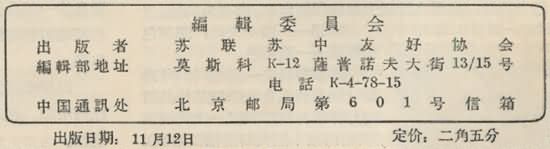 編輯委員会
出版者 苏联苏中友好协会
編輯部地址 莫斯科 K-12 薩普諾夫大街 13/15 号
电話 K-4-78-15
中国通訊处 北京邮局第601号信箱
出版日期：11月12日 定价：二角五分